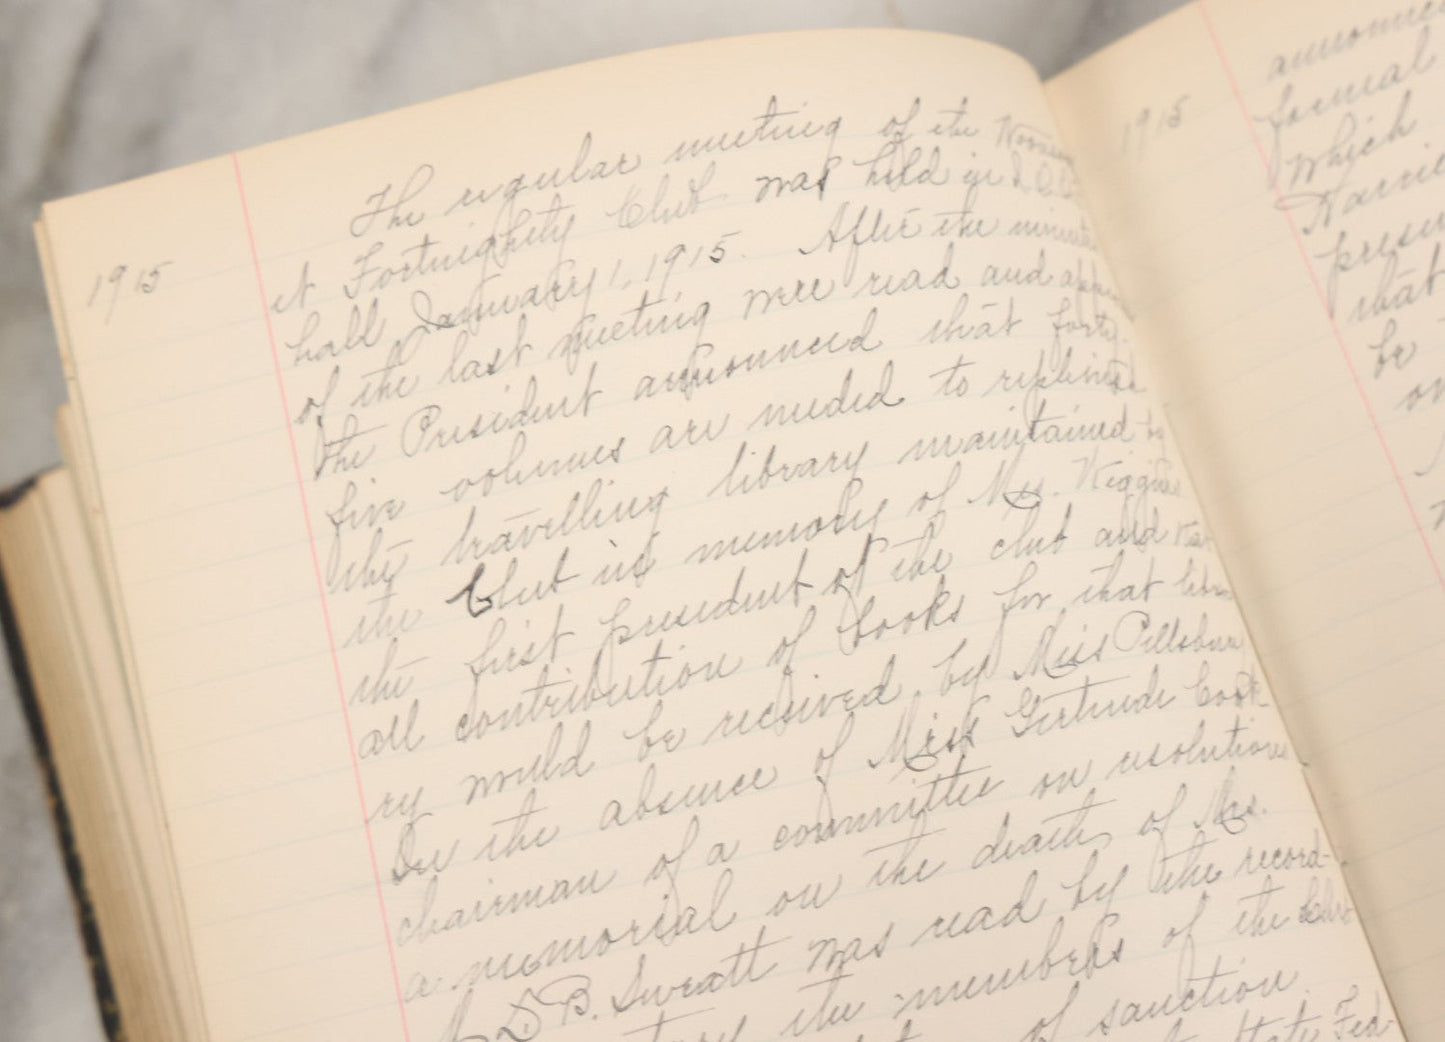 1915
The regular meeting of the Woman
et Fortnightly Club was held in
hall January 1, 1915. After the minutes
of the last meeting were read and
the President announced that forty-
five volumes are needed to replenish
the travelling library maintained by
the Club in memory of Mrs. Higgins
the first president of the club and that
all contribution of books for that libra
ry would be received by Miss Pillsbury
In the absence of Miss Gertrude Cook
chairman of a committee on resolutions
a memorial on the death of Mrs.
D. B. Sweatt was read by the record-
the members of the
of sanction
State Fed-
1915
announced
formal
which
presen
that
be
on